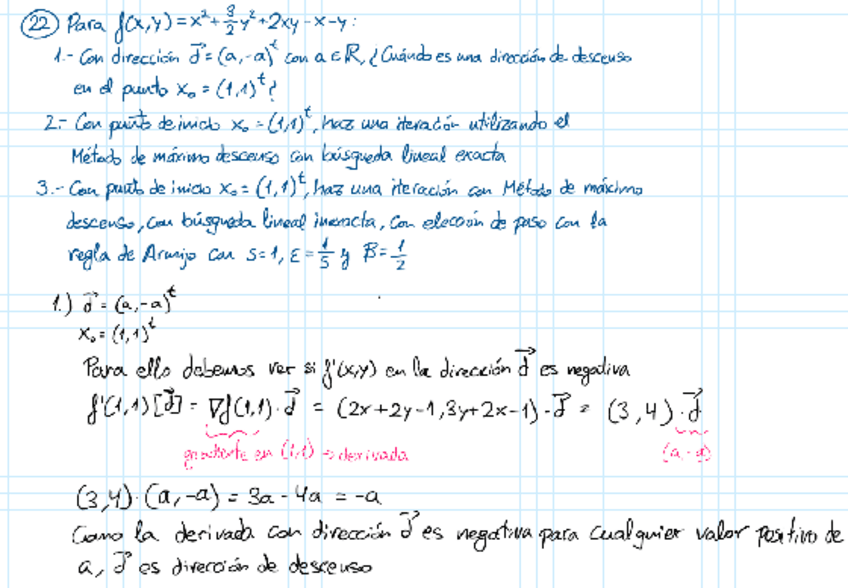 22 Para f(x,y) = x² + 3/2 y² + 2xy - x - y :
1.- Con dirección d⃗ = (a,-a)ᵗ con a ∈ ℝ, ¿Cuándo es una dirección de descenso
en el punto x₀ = (1,1)ᵗ?
2.- Con punto de inicio x₀ = (1,1)ᵗ, haz una iteración utilizando el
Método de máximo descenso con búsqueda lineal exacta
3.- Con punto de inicio x₀ = (1,1)ᵗ, haz una iteración con Método de máximo
descenso, con búsqueda lineal inexacta, con elección de paso con la
regla de Armijo con s=1, ε = 1/5 y β = 1/2
1.) d⃗ = (a,-a)ᵗ
x₀ = (1,1)ᵗ
Para ello debemos ver si f'(x,y) en la dirección d⃗ es negativa
f'(1,1)[d⃗] = ∇f(1,1)·d⃗ = (2x+2y-1, 3y+2x-1)·d⃗ = (3,4)·d⃗
gradiente en (1,1) → derivada (a,-a)
(3,4)·(a,-a) = 3a - 4a = -a
Como la derivada con dirección d⃗ es negativa para cualquier valor positivo de
a, d⃗ es dirección de descenso